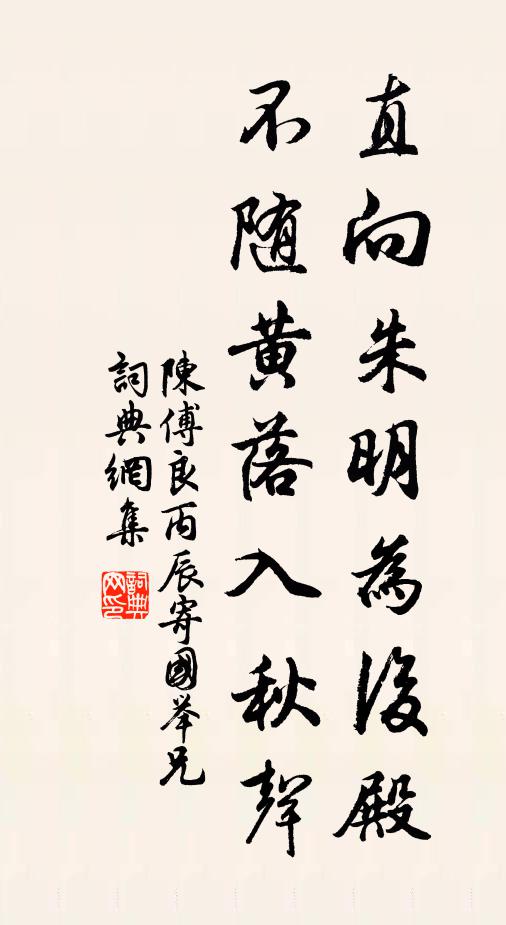 直向朱明為後殿
不随黃落入秋聲
陳傅良丙辰寄國舉兄
詞典網集
詞典网印